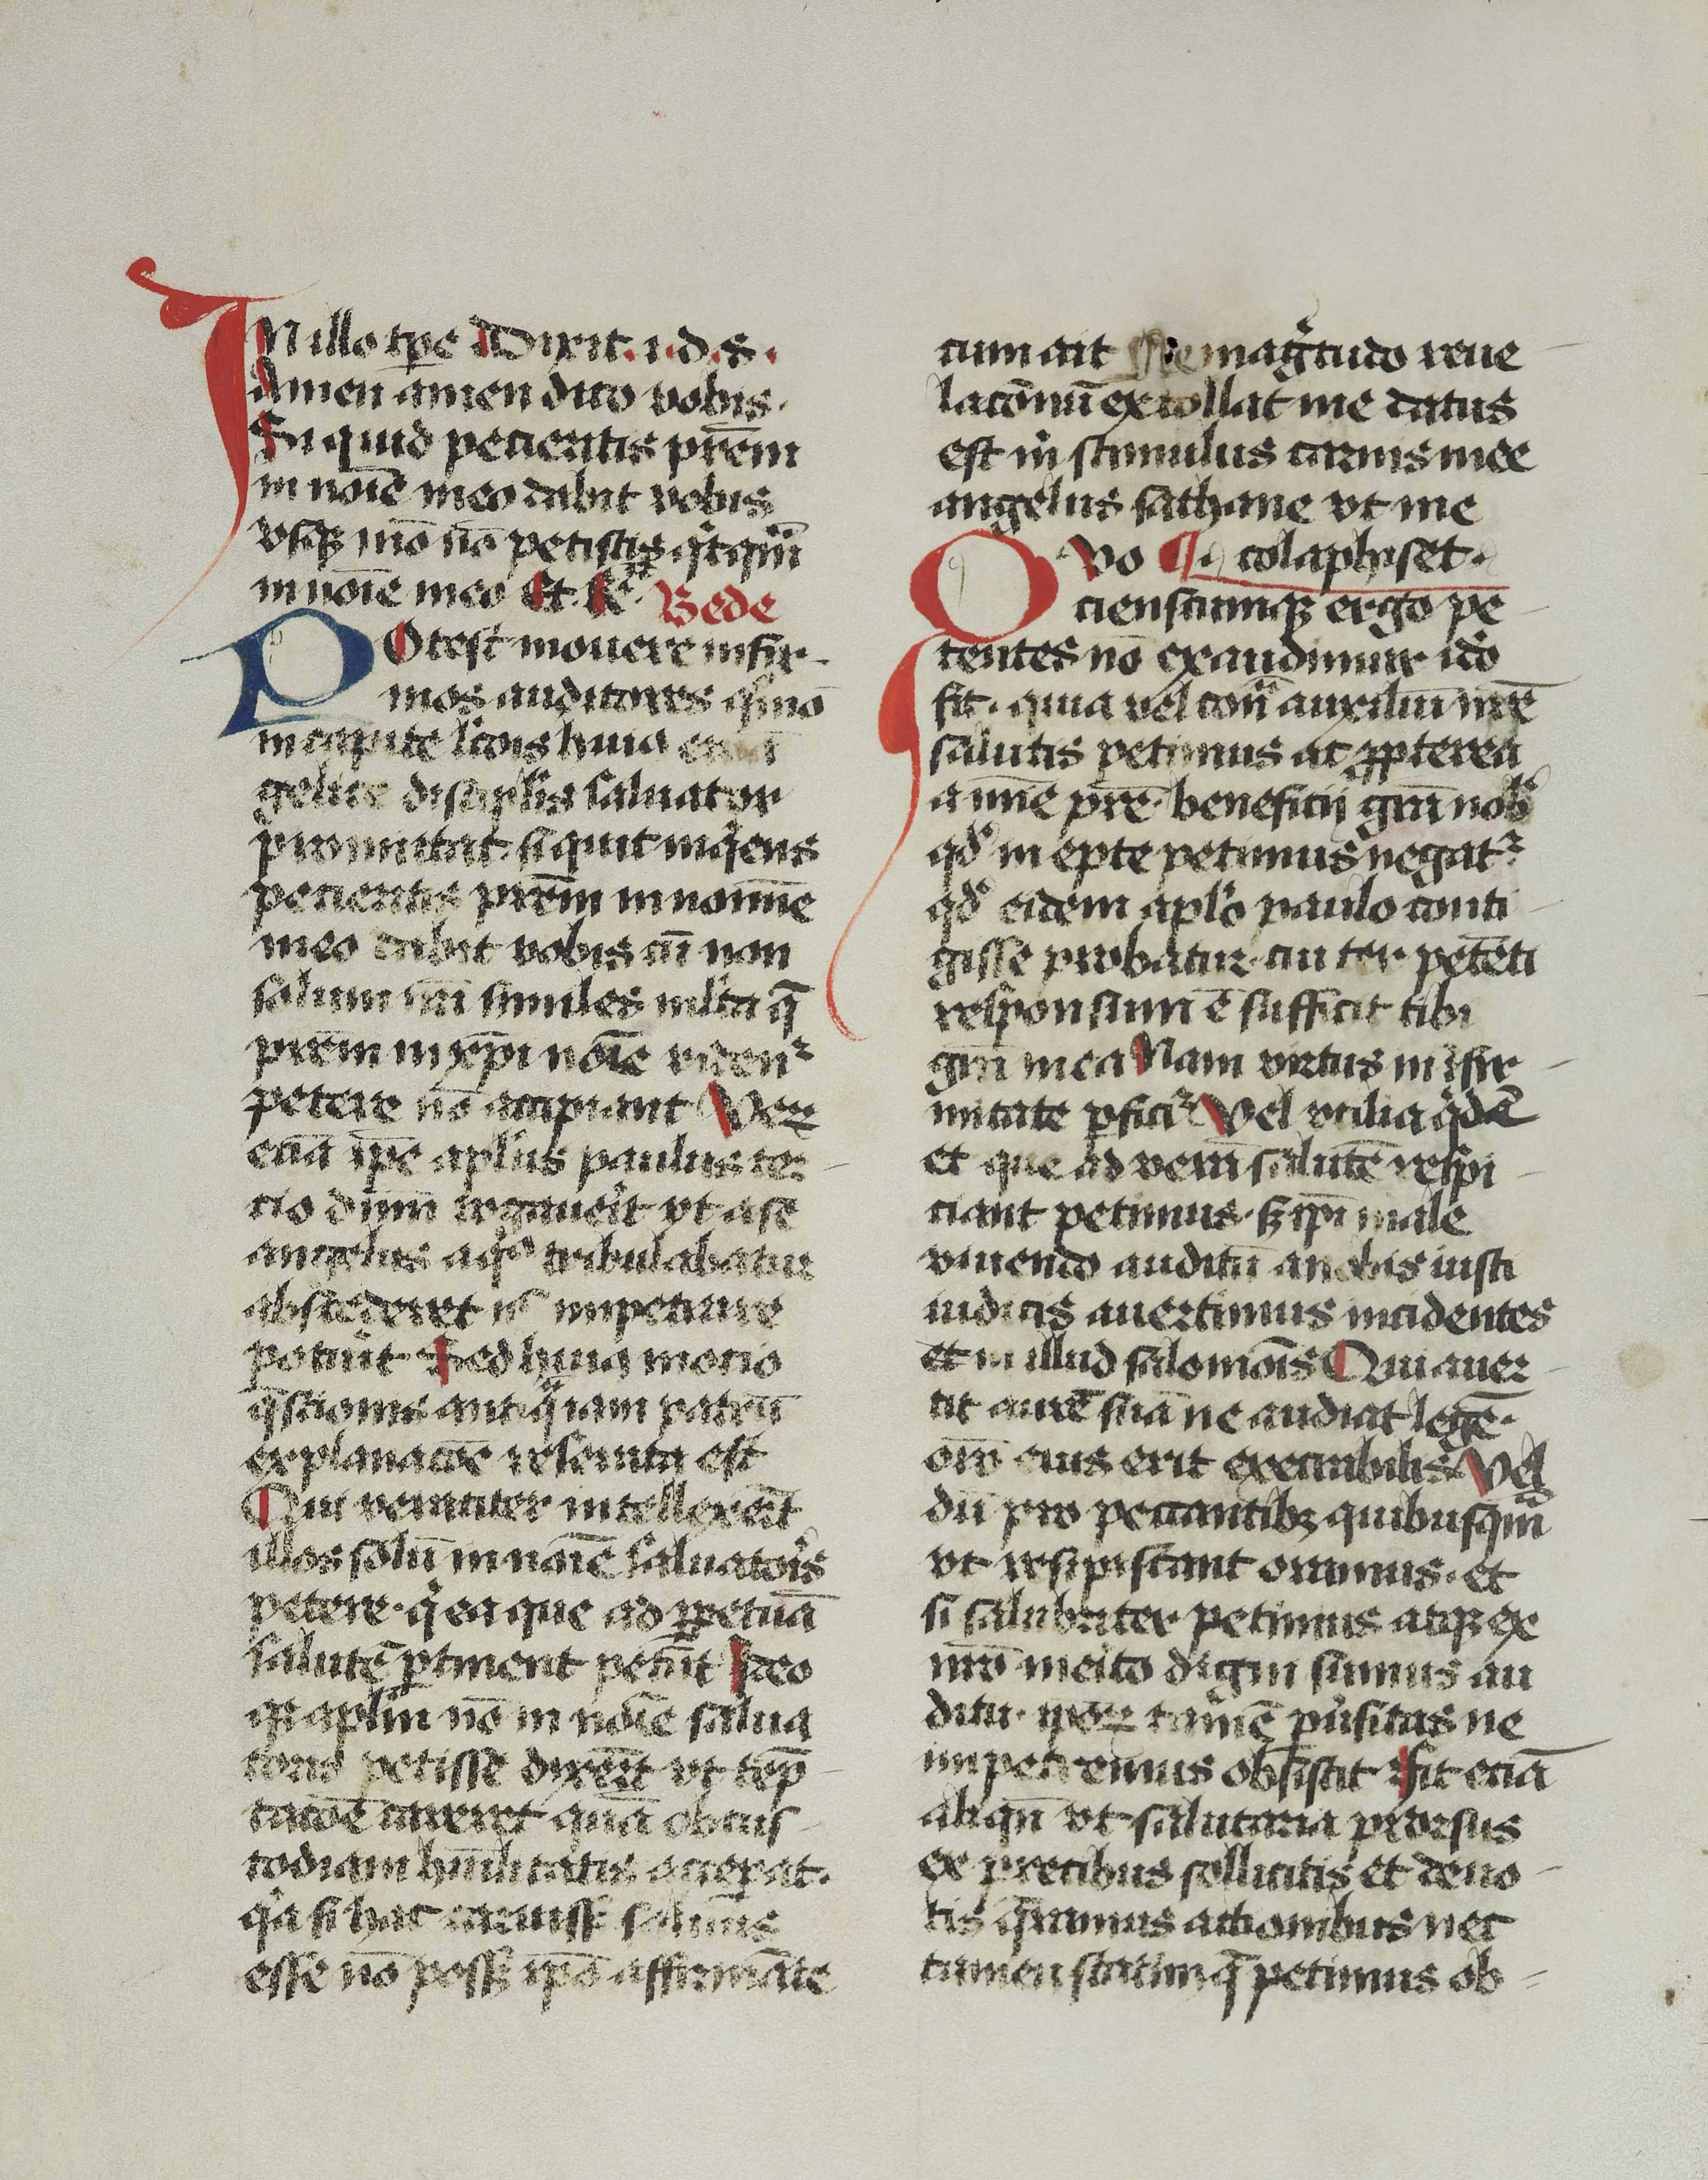 IN illo tp̄e Dixit .i.d.s.
Amen amen dico vobis.
Si quid pecieritis prēm
in noīe meo dabit vobis
vsqꝫ mō nō petistis qͥtqͣm̄
in noīe meo Et. R̄. Bede
POtest mouere infir-
mos auditores qͦmō
in capite lc̄ois huiꝰ euā
gelice discipl̄is saluator
promittat. si quit inqͥens
pecieritis prēm in nomīe
meo dabit vobis cū non
solum nr̄i similes ml̄ta q̄
prēm in xp̄i noīe viden̄ᷣ
petere nō accipiant Veꝝ
eciā ip̄e apl̄us paulus ter
cio dūm rogauerit vt a se
angelus a qͦ tribulabatur
abscederet nͨ impetrare
potuit Sed huiꝰ mocio
q̄stionis antiqͣ iam patrū
explanacōe reserata est
Qui veraciter intellexert̄
illos solū in noīe saluatorͥs
petere. qͥ ea que ad ꝑpetuā
salutē ꝑtinent petūt Ideo
qꝫ apl̄m nō in noīe salua
toris petisse dixert̄ vt tēp
tacōe careret quā ob cus
todiam hūilitatis acceperat.
qͥa si hac caruissꝫ saluus
esse nō possꝫ ip̄o affirmāte
cum ait Ne magͥtudo reue
lacōnū extollat me datus
est mͥ stimulus carnis mee
angelus sathane vt me
QVo ¶ colaphiset.
cienscumqꝫ ergo pe
tentes nō exaudimur ido
fit. quia vel contͣ auxiliū nr̄e
salutis petimus ac ꝓpterea
a mīe pr̄e. beneficij gr̄a nobͨ
qdͦ in epte petimus negatᷣ
qdͦ eidem aplͦo paulo conti
gisse probatur. cui ter petēti
responsum ē sufficit tibi
gr̄a mea Nam virtus in īfir
mitate ꝑficiᷣ Vel vtilia qͥdē
et que ad verā salutē respi
ciant petimus. sꝫ ip̄i male
viuendo auditū a nobis iusti
iudicis auertimus incidentes
et in illud salomōis Qui auer
tit aurē suā ne audiat legē.
orō eius erit execrabilis Vel
dū pro peccantibꝫ quibusqͣm
vt resipiscant oramus. et
si salubriter petimus atqꝫ ex
nrō merito digni sumus au
ditu. ipoꝝ tamē pͥuersitas ne
impetremus obsistit Fit eciā
aliqn̄ vt salutaria prorsus
ex precibus sollicitis et deuo
tis qͥramus actionibus nec
tamen statim q̄ petimus ob